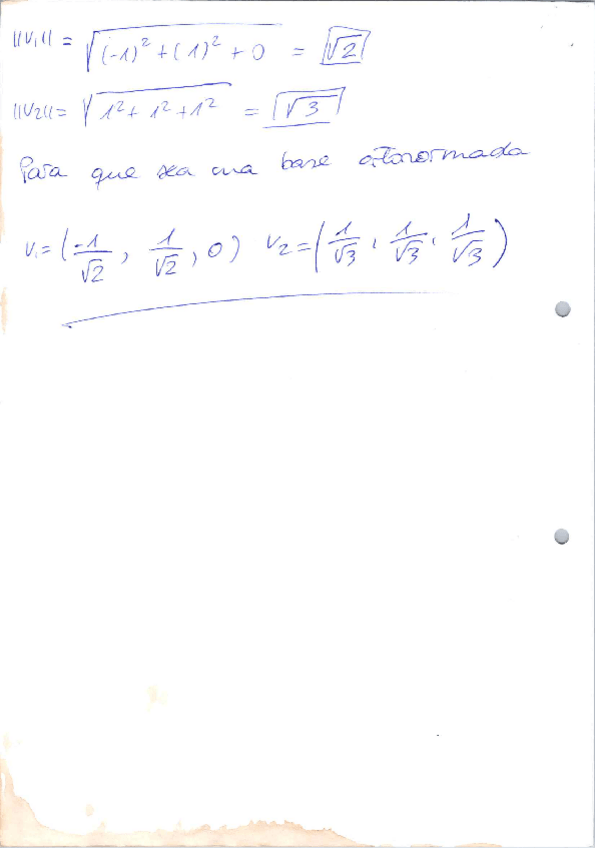 ||V₁|| = √((-1)² + (1)² + 0) = √2
||V2|| = √(1² + 1² + 1²) = √3
Para que sea una base ortonormada
V₁ = (-1/√2, 1/√2, 0) V2 = (1/√3, 1/√3, 1/√3)